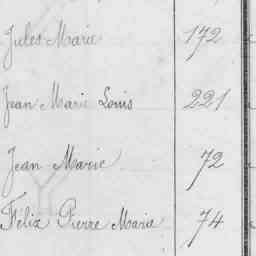 Jules Marie 172
Jean Marie Louis 221
Jean Marie 72
Félix Pierre Marie 74